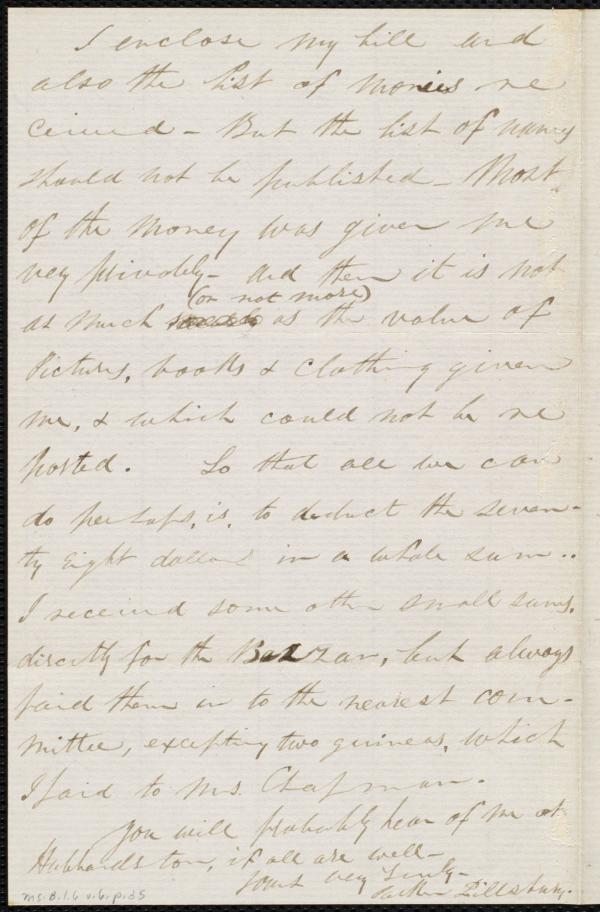 I enclose my bill and
also the list of monies re
ceived - But the list of names
should not be published - Most
of the money was given me
very privately - and then it is not
(or not more)
as much as the value of
Pictures, books & clothing given
me, & which could not be re
ported. So that all we can
do perhaps, is, to deduct the seven-
ty eight dollars in a whole sum..
I received some other small sums,
directly for the Bazzar, but always
paid them in to the nearest com-
mittee, excepting two guineas, which
I paid to Mrs. Chapman.
You will probably hear of me at
Hubbardston, if all are well -
yours very truly -
Parker Pillsbury.
Ms.B.1.6 v.6, p.35